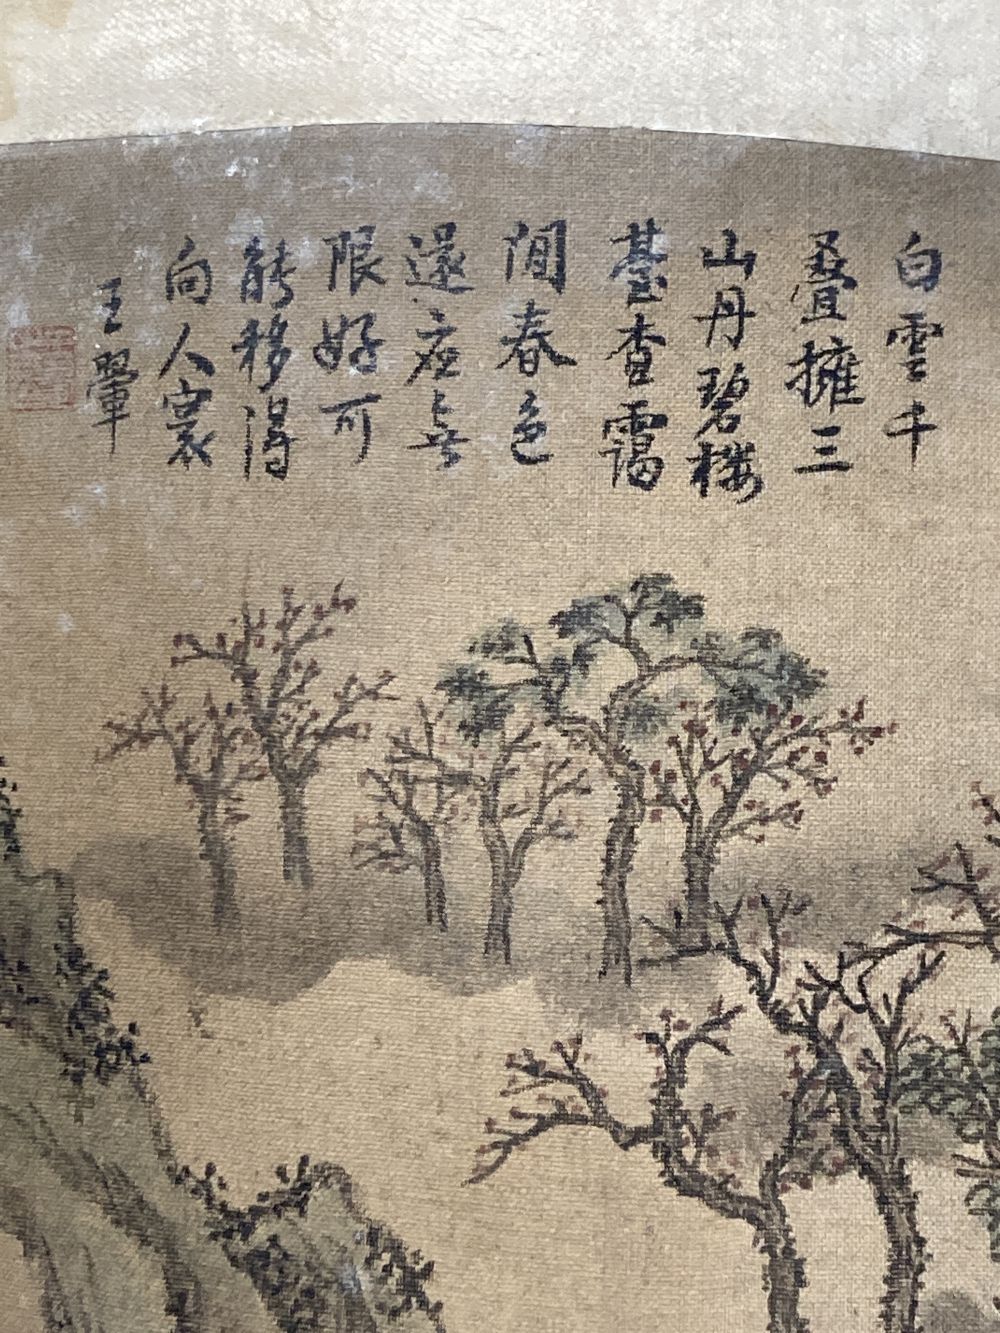 白雲千
疊擁三
山丹碧樓
臺杳靄
間春色
還应無
限好可
能移得
向人寰
王翬